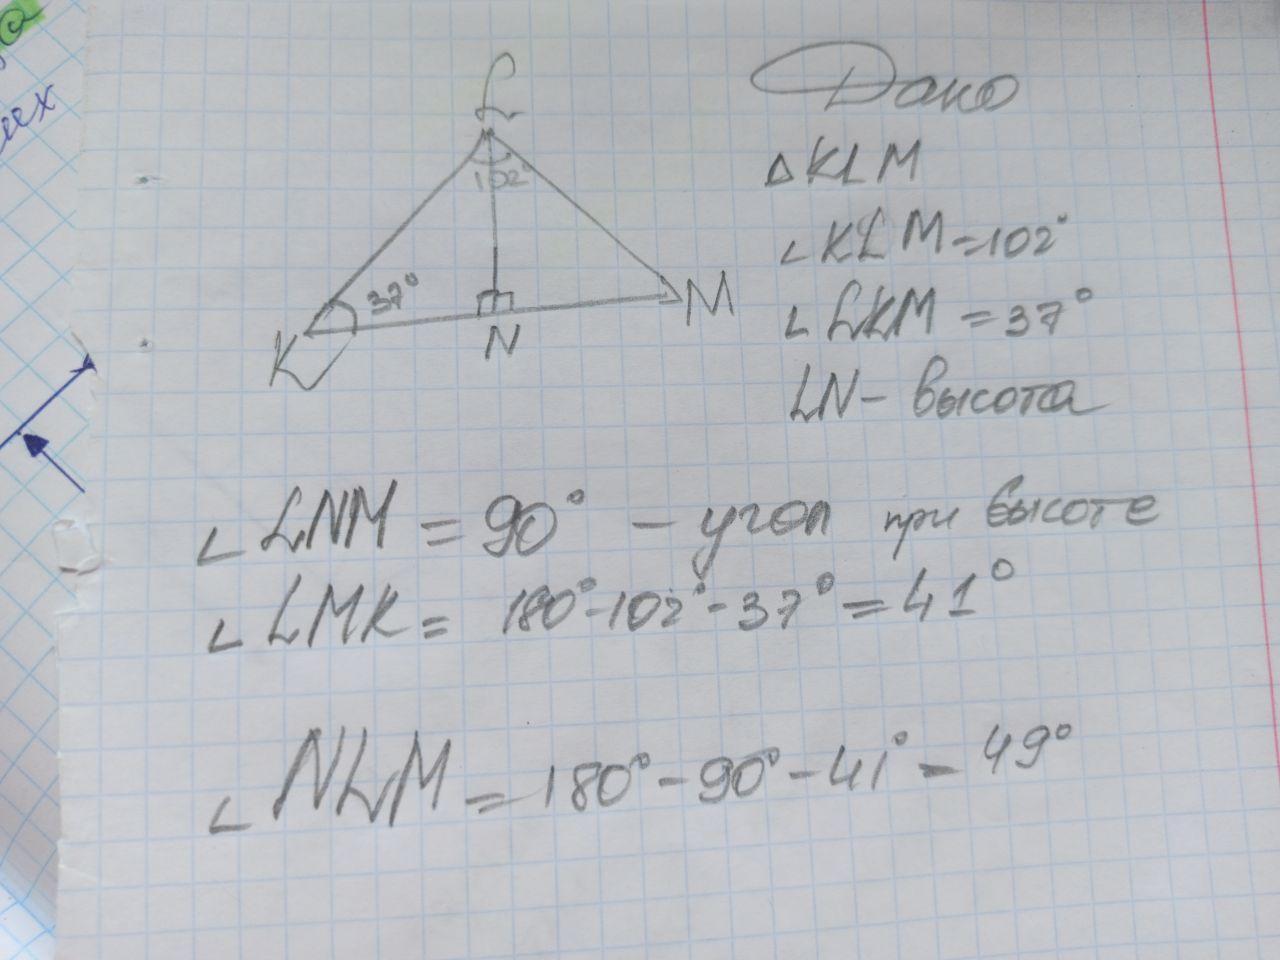 L
102°
37°
K
N
M
Дано
△KLM
∠KLM=102°
∠LKM=37°
LN- высота
∠LNM = 90° - угол при высоте
∠LMK= 180°-102°-37°=41°
∠NLM=180°-90°-41°=49°